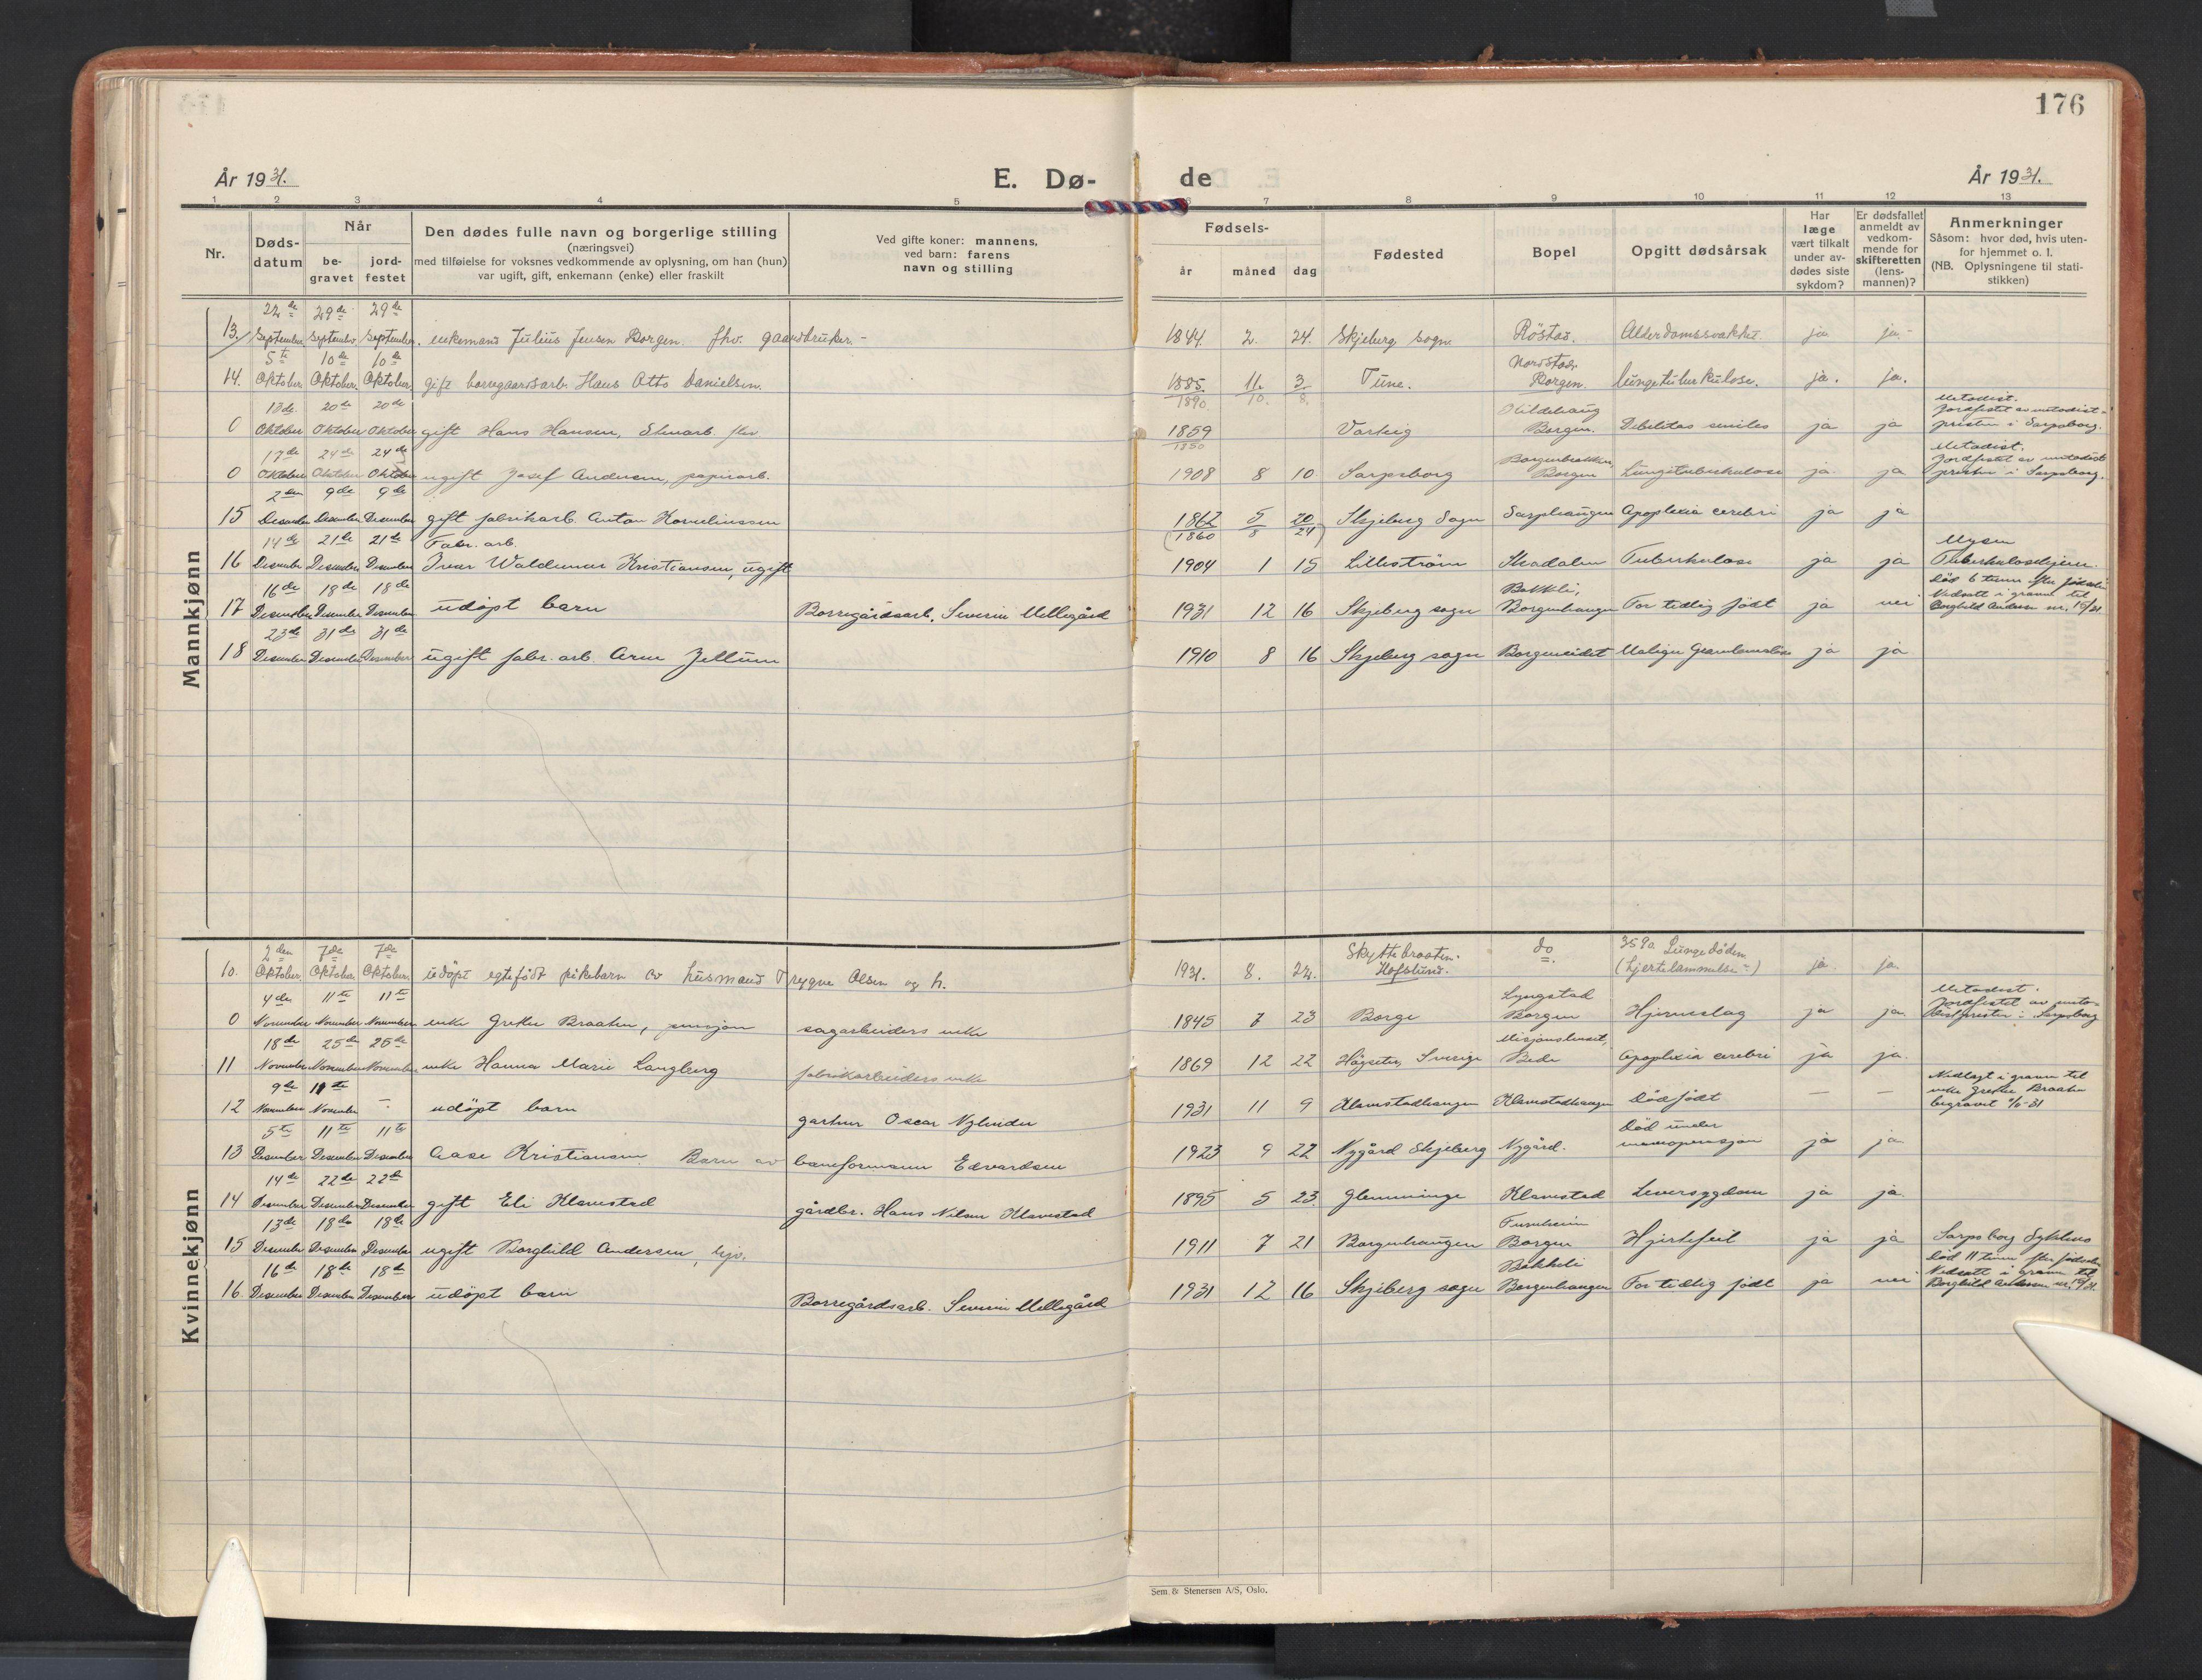 176
År 1931.
E. Dø-
de
År 1931.
1 2 3 4 5 6 7 8 9 10 11 12 13
Nr.
Døds-
datum
Når
be-
gravet
jord-
festet
Den dødes fulle navn og borgerlige stilling
(næringsvei)
med tilføielse for voksnes vedkommende av oplysning, om han (hun)
var ugift, gift, enkemann (enke) eller fraskilt
Ved gifte koner: mannens,
ved barn: farens
navn og stilling
Fødsels-
år måned dag
Fødested
Bopel
Opgitt dødsårsak
Har
læge
vært tilkalt
under av-
dødes siste
sykdom?
Er dødsfallet
anmeldt av
vedkom-
mende for
skifteretten
(lens-
mannen)?
Anmerkninger
Såsom: hvor død, hvis uten-
for hjemmet o. l.
(NB. Oplysningene til stati-
stikken)
Mannkjønn
22de 29de 29de
13 September September September. enkemand Julius Jensen Borgen. fhv. gaardbruker. 1844. 2. 24. Skjeberg sogn. Röstad. Alderdomssvakhet. ja ja.
5te 10de 10de Nordstad.
14. Oktober Oktober Oktober. gift borregaardsarb. Hans Otto Danielsen. 1885. 11. 3. Tune. Borgen. lungetuberkulose. ja. ja.
1890 10. 8.
13de 20de 20de Hildehaug Metodist.
Jordfestet av metodist-
0 Oktober Oktober Oktober gift Hans Hansen, Stenarb. fhv 1859 Varteig Borgen. Debilitas seniles ja ja presten i Sarpsborg.
1850
17de 24de 24de Borgenbakken, Metodist.
Jordfestet av metodist
0 Oktober Oktober Oktober ugift Josef Andersen, papirarb. 1908 8 10 Sarpsborg Borgen Lungetuberkulose ja ja presten i Sarpsborg.
2den 9de 9de
15 Desember Desember Desember gift fabrikarb. Anton Kornelinssen 1862 5 20 Skjeberg Sogn Sarphaugen Apoplexia cerebri ja ja
(1860 8 24)
14de 21de 21de Fabr. arb. Mysen
16 Desember Desember Desember Ivar Waldemar Kristiansen, ugift 1904 1 15 Lilleström Skadalen Tuberkulose ja ja Tuberkulosehjem.
16de 18de 18de Bakkli, Död 6 timer efter födselen
Nedsatt i graven til
17 Desember Desember Desember udöpt barn Borregårdsarb. Severin Mellegård 1931 12 16 Skjeberg sogn Borgenhaugen For tidlig födt ja nei Borghild Andersen nr. 15/31
23de 31de 31de
18 Desember Desember Desember ugift fabr. arb. Arne Jellum 1910 8 16 Skjeberg sogn Borgeneidet Malign ja ja
Kvinnekjønn
2den 7de 7de Skyttebraaten. do 359a Lungedöden
10. Oktober. Oktober Oktober. udöpt egtefödt pikebarn av husmand Trygve Olsen og h. 1931. 8. 24. Hafslund. (hjertelammelse) ja ja.
4de 11te 11te Lyngstad Metodist.
Jordfestet av meto-
0 November November November enke Grethe Braaten, pensjon sagarbeiders enke 1845 7 23 Borge Borgen Hjerneslag ja ja. distpresten i Sarpsborg
18de 25de 25de Misjonshuset,
11 November November November enke Hanna Marie Langberg fabrikarbeiders enke 1869 12 22 Högseter, Sverige Bede Apoplexia cerebri ja ja.
9de 11te Nedlagt i graven til
enke Grethe Braaten
12 November November - udöpt barn gartner Oscar Nylender 1931 11 9 Klavestadhaugen Klavestadhaugen Dödfödt — — begravet 11/11-31
5te 11te 11te Död under
13 Desember Desember Desember Aase Kristiansen. Barn av baneformann Edvardsen 1923 9 22 Nygård Skjeberg Nygård. ja ja
14de 22de 22de
14 Desember Desember Desember gift Eli Klavestad gårdbr. Hans Nilsen Klavestad 1895 5 23. Glemminge Klavestad Leversygdom ja ja.
13de 18de 18de Furuheim
15 Desember Desember Desember ugift Borghild Andersen, hjv. 1911 7 21 Borgenhaugen Borgen Hjertefeil ja ja Sarpsborg Sykehus
16de 18de 18de Bakkeli Död 11 timer efter födselen
Nedsatt i graven til
16. Desember Desember Desember udöpt barn Borregårdsarb. Severin Mellegård 1931 12 16 Skjeberg sogn Borgenhaugen For tidlig födt ja nei Borghild Andersen nr. 15/31.
Sem & Stenersen A/S, Oslo.